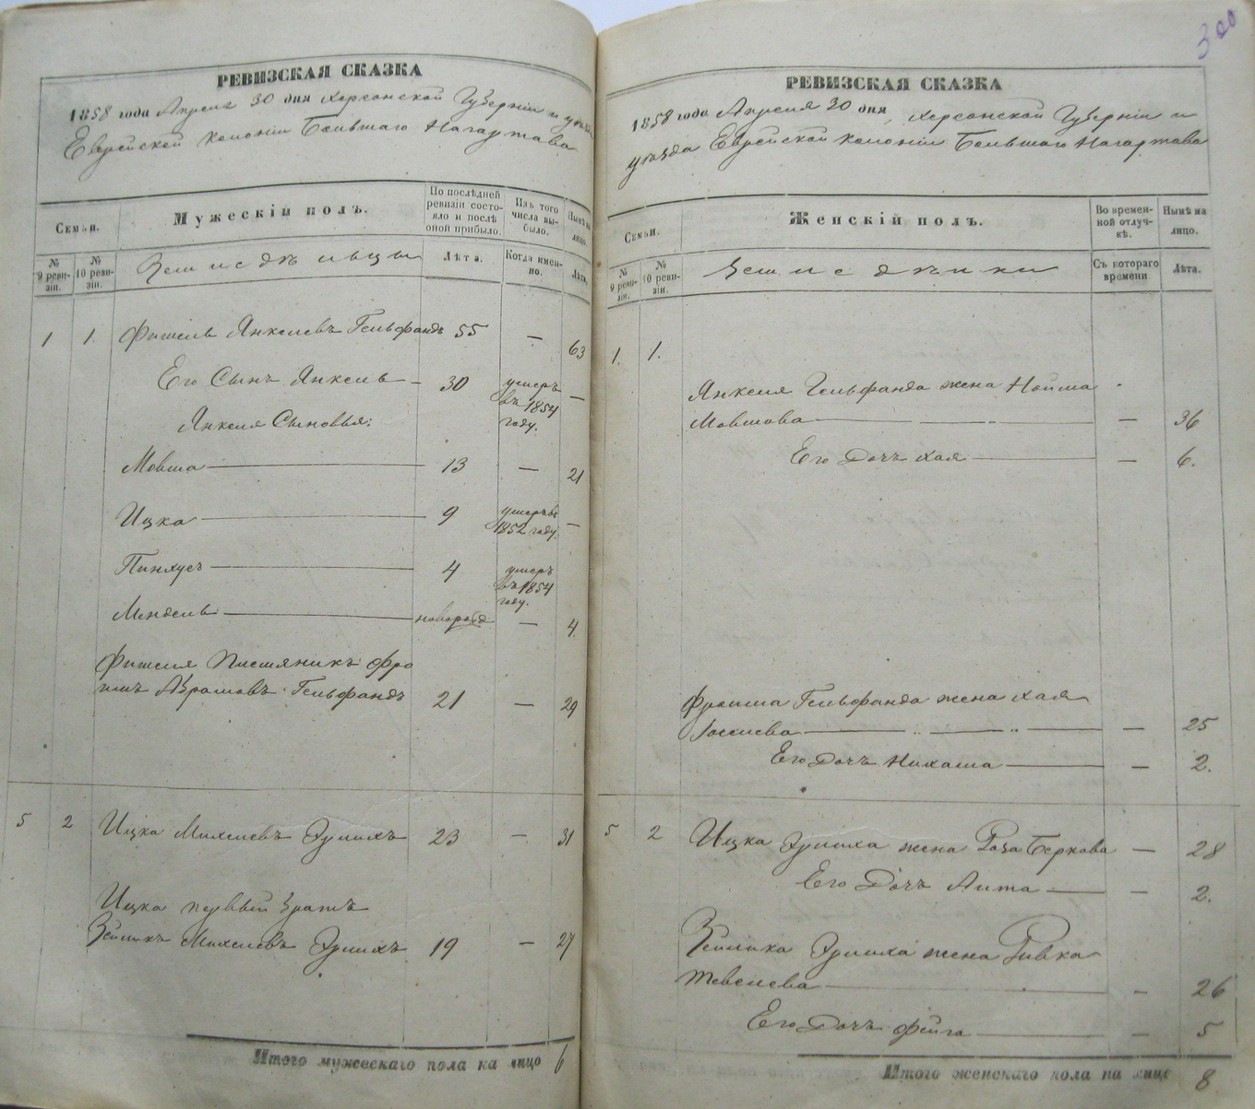 РЕВИЗСКАЯ СКАЗКА
1858 года Апреля 30 дня Херсонской Губерніи и уезда
Еврейской колоніи Большаго Нагартава
Семьи.
Мужескій полъ.
По послѣдней ревизіи состояло и послѣ оной прибыло.
Изъ того числа выбыло.
Нынѣ на лицо.
№ 9 ревизіи.
№ 10 ревизіи.
Земледѣльцы
Лѣта.
Когда именно.
Лѣта.
1 1. Фишель Янкелевъ Гельфандъ 55 — 63
Его Сынъ Янкель — 30 умеръ въ 1854 году. —
Янкеля Сыновья:
Мовша — 13 — 21
Ицка — 9 умеръ въ 1852 году. —
Пинхусъ — 4 умеръ въ 1854 году. —
Мендель — новорожд — 4.
Фишеля Племяникъ Фро
имъ Абрамовъ Гельфандъ 21 — 29
5 2 Ицка Михелевъ Эрлихъ 23 — 31
Ицка первый братъ
Зейликъ Михелевъ Эрлихъ 19 — 27
Итого мужескаго пола на лицо 6
300
РЕВИЗСКАЯ СКАЗКА
1858 года Апреля 30 дня, Херсонской Губерніи и
уезда Еврейской колоніи Большаго Нагартава
Семьи.
Женскій полъ.
Во временной отлучкѣ.
Нынѣ на лицо.
№ 9 ревизіи.
№ 10 ревизіи.
Земледѣлки
Съ котораго времени
Лѣта.
1. 1.
Янкеля Гельфанда жена Нойма
Мовшова — — 36
Его Дочь Хая — — 6.
Фроима Гельфанда жена Хая
Іоселева — — 25
Его Дочь Нихама — — 2.
5 2 Ицка Эрлиха жена Роза Беркова — 28
Его Дочь Лита — — 2.
Зейлика Эрлиха жена Ривка
Тевелева — — 26
Его Дочь Фейга — — 5
Итого женскаго пола на лицо 8